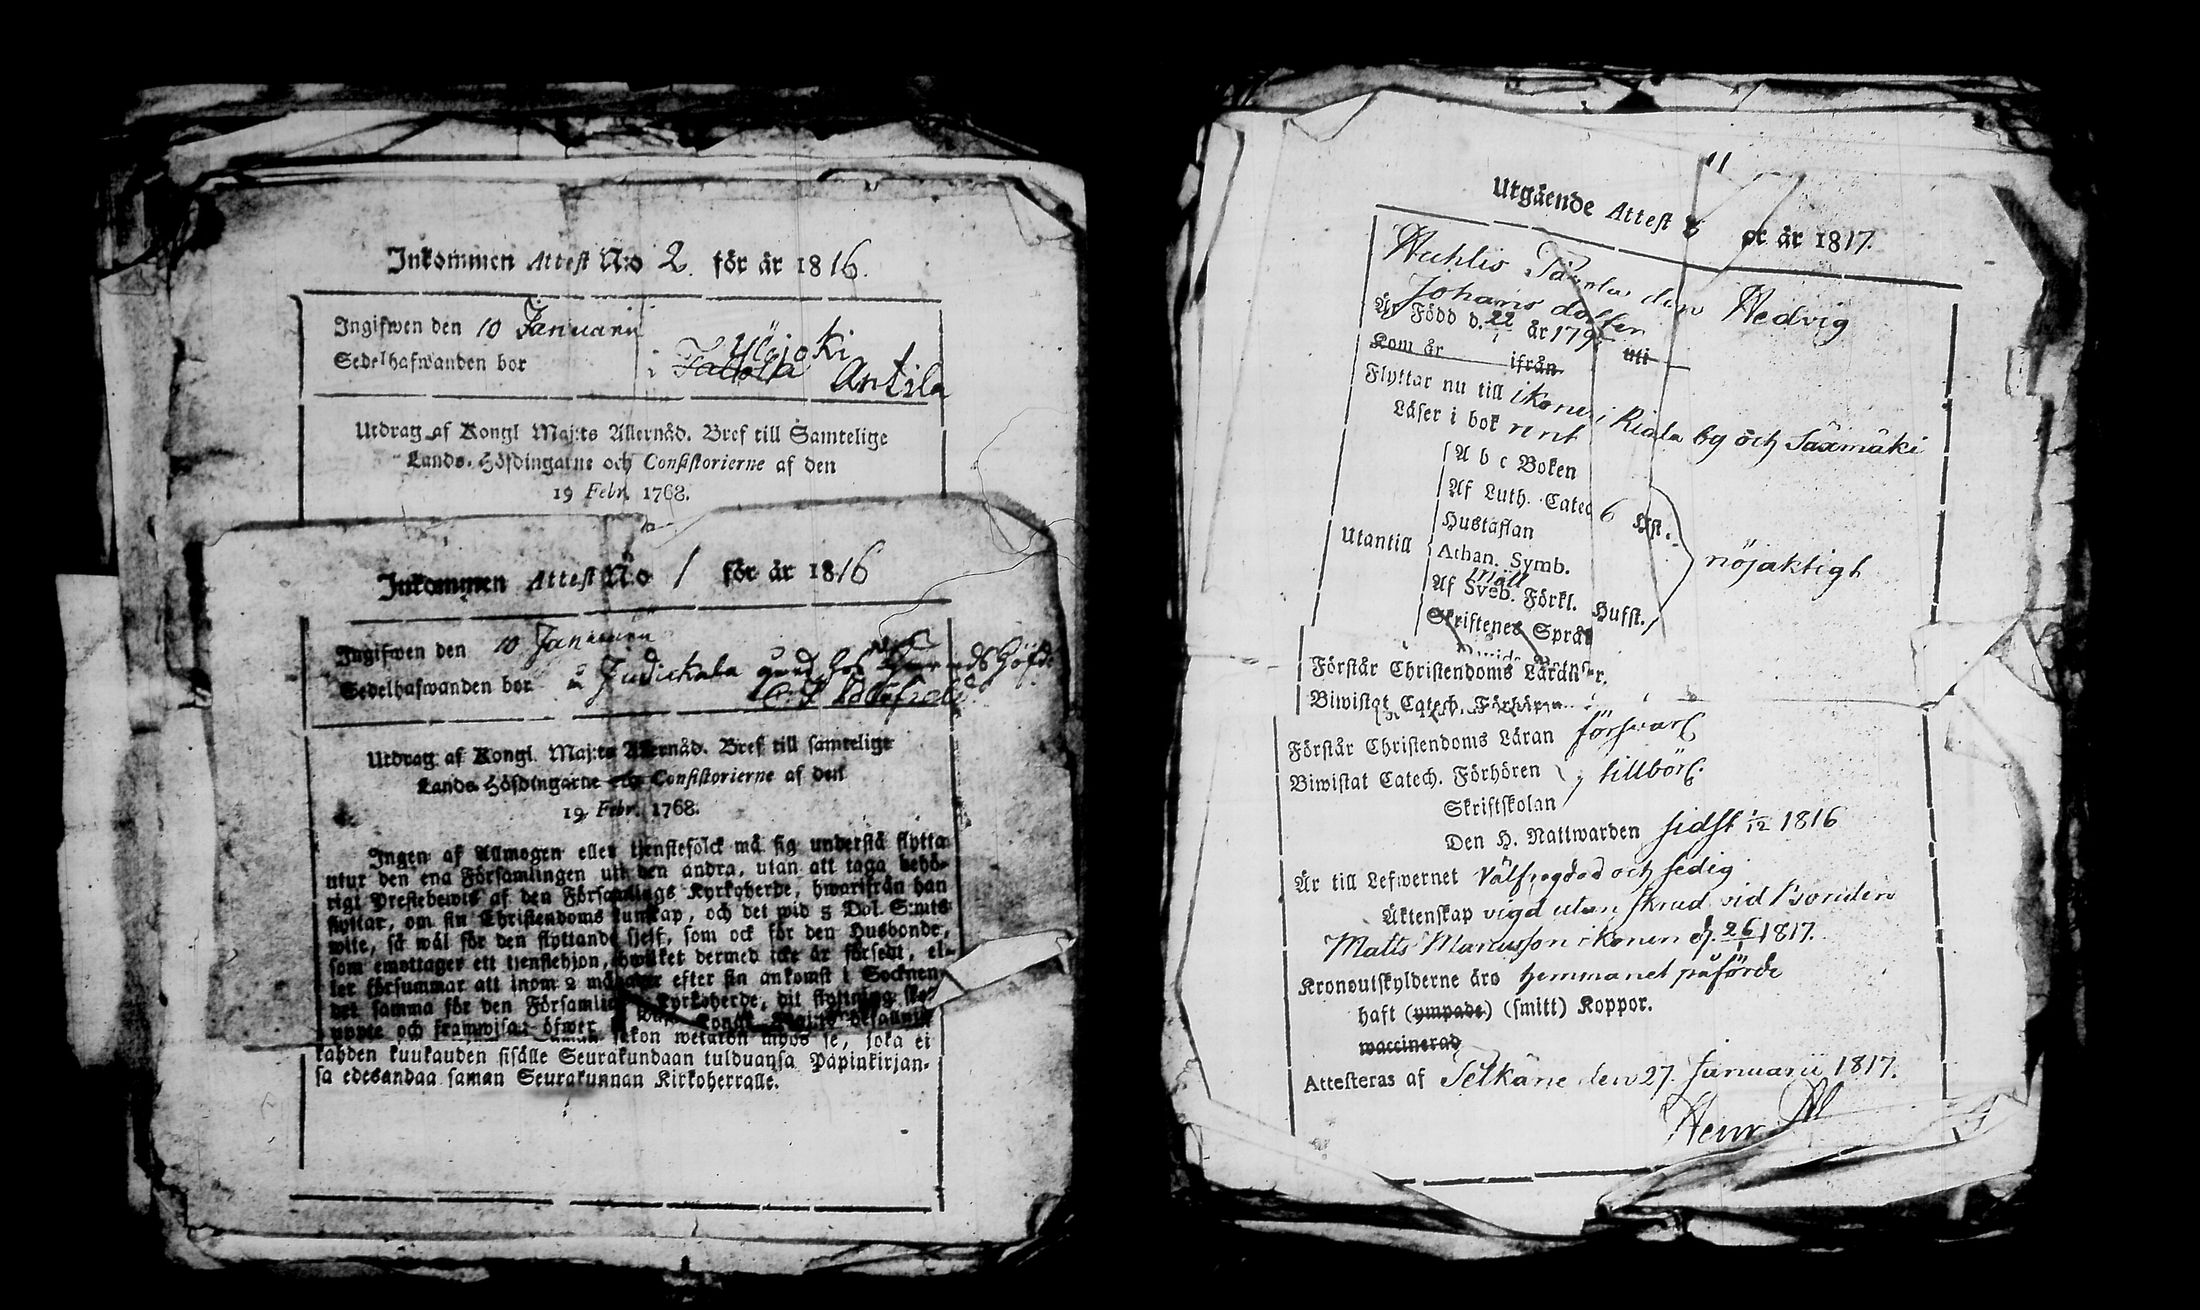 Inkommen Attest N:o 2. för år 1816.
Ingifwen den 10 Januarii
Sedelhafwanden bor i Jutola Ylöjoki Antila
Utdrag af Kongl Maj:ts Allernåd. Bref till Samtelige
Lands-Höfdingarne och Consistorierne af den
19 Febr. 1768.
Inkommen Attest N:o 1 för år 1816
Ingifwen den 10 Januarii
Sedelhafwanden bor å Judickala
Utdrag af Kongl. Maj:ts Allernåd. Bref till samtelige
Lands-Höfdingarne och Consistorierne af den
19 Febr. 1768.
Ingen af Allmogen eller tjenstefolck må sig understå flytta
utur den ena Församlingen uti den andra, utan att taga behö-
rigt Prestebewis af den Församlings Kyrkoherde, hwarifrån han
flyttar, om sin Christendoms kunskap, och det wid 5 Dol. S:mts
wite, så wäl för den flyttande sjelf, som ock för den Husbonde,
som emottager ett tjenstehjon, hwilket dermed icke är försedt, el-
ler försummar att inom 2 månader efter sin ankomst i Socknen
det samma för den Församlings Kyrkoherde, dit flyttning ske
uppte och framwisa: öfwer Kongl. Maj:ts
wetäkön myös se, joka ei
kahden kuukauden sisälle Seurakundaan tulduansa Papinkirjan-
sa edesandaa saman Seurakunnan Kirkoherralle.
11
Utgående Attest för år 1817.
Huhlis Hedvig
Johans dotter
Är Född d. 22 år 179 uti
Kom år ifrån
Flyttar nu till i Riala by och Säxmäki
Läser i bok rent
A b c Boken
Af Luth. Catec 6 Hst.
Hustaflan
Utantill Athan. Symb. nöjaktigt
Af Sveb. Förkl.
Skriftenes Språk Hufst.
Förstår Christendoms Läran
Biwistat Catech. Förhören
Förstår Christendoms Läran försvarl
Biwistat Catech. Förhören tillbörl.
Skriftskolan
Den H. Nattwarden sidst 1/12 1816
Är till Lefwernet Välfrägdad och sedig
Äktenskap vigd utan skrud vid Bonden
Matts d. 26/1 1817.
Kronoutskylderne äro hemmanet påförde
haft (ympade) (smitt) Koppor.
waccinerad
Attesteras af Selkäne den 27. Januarii 1817.
Henr